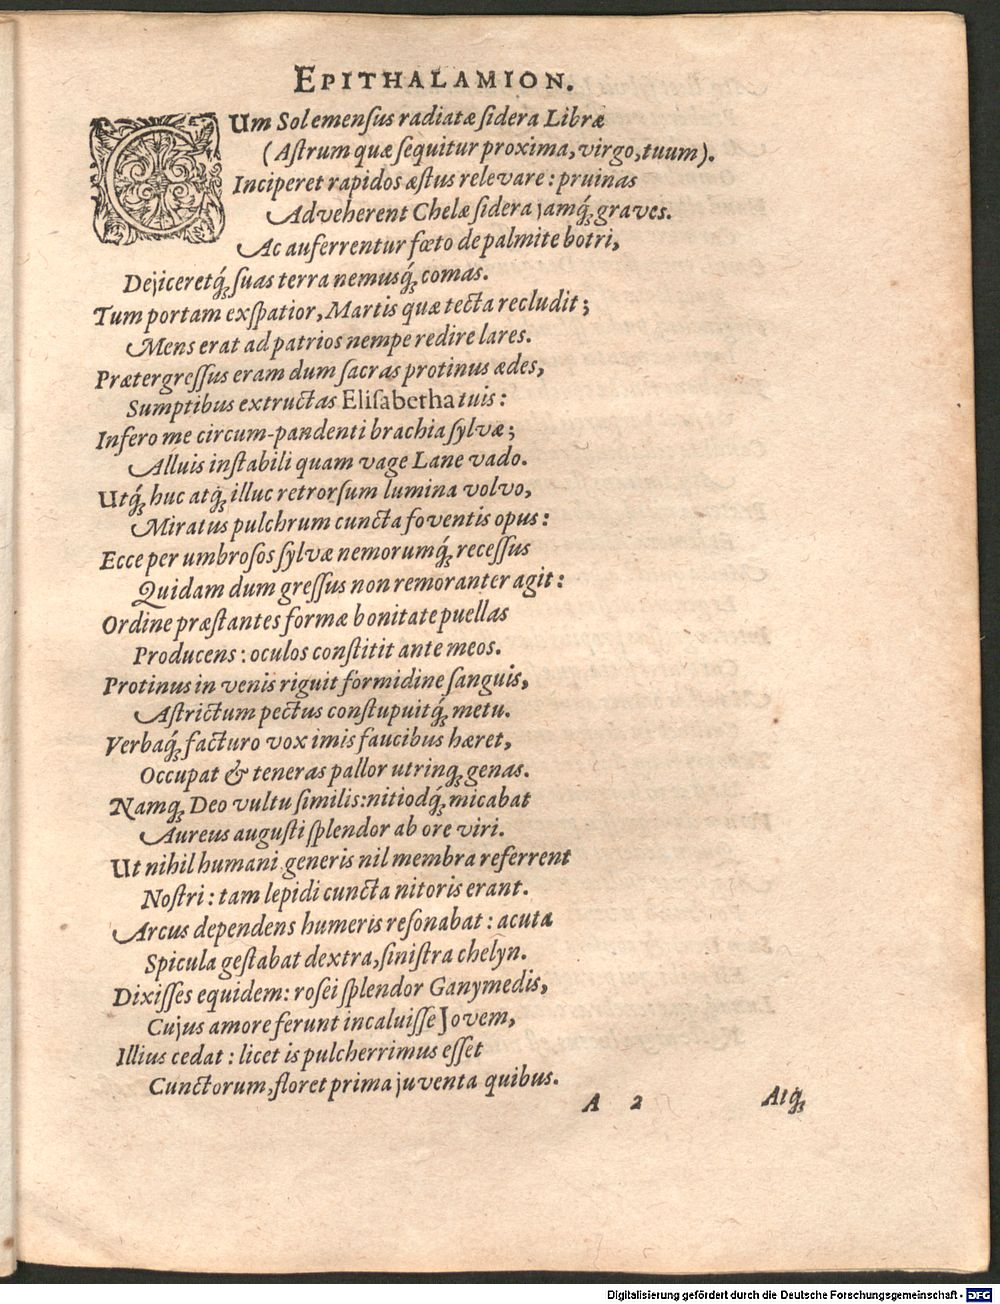 EPITHALAMION.
CUm Sol emensus radiatæ sidera Libræ
(Astrum quæ séquitur proxima, virgo, tuum).
Inciperet rapidos æstus relevare: pruinas
Adveherent Chelæ sidera jamq́; graves.
Ac auferrentur fœto de palmite botri,
Dejiceretq́; suas terra nemusq́; comas.
Tum portam exspatior, Martis quæ tecta recludit;
Mens erat ad patrios nempe redire lares.
Prætergressus eram dum sacras protinus ædes,
Sumptibus extructas Elisabetha tuis:
Infero me circum-pandenti brachia sylvæ;
Alluis instabili quam vage Lane vado.
Utq́; huc atq́; illuc retrorsum lumina volvo,
Miratus pulchrum cuncta foventis opus:
Ecce per umbrosos sylvæ nemorumq́; recessus
Quidam dum gressus non remoranter agit:
Ordine præstantes formæ bonitate puellas
Producens: oculos constitit ante meos.
Protinus in venis riguit formidine sanguis,
Astrictum pectus constupuitq́; metu.
Verbaq́; facturo vox imis faucibus hæret,
Occupat & teneras pallor utrinq; genas.
Namq; Deo vultu similis: nitiodq́; micabat
Aureus augusti splendor ab ore viri.
Ut nihil humani generis nil membra referrent
Nostri: tam lepidi cuncta nitoris erant.
Arcus dependens humeris resonabat: acuta
Spicula gestabat dextra, sinistra chelyn.
Dixisses equidem: rosei splendor Ganymedis,
Cujus amore ferunt incaluisse Jovem,
Illius cedat: licet is pulcherrimus esset
Cunctorum, floret prima juventa quibus.
A 2 Atq́;
Digitalisierung gefördert durch die Deutsche Forschungsgemeinschaft - DFG